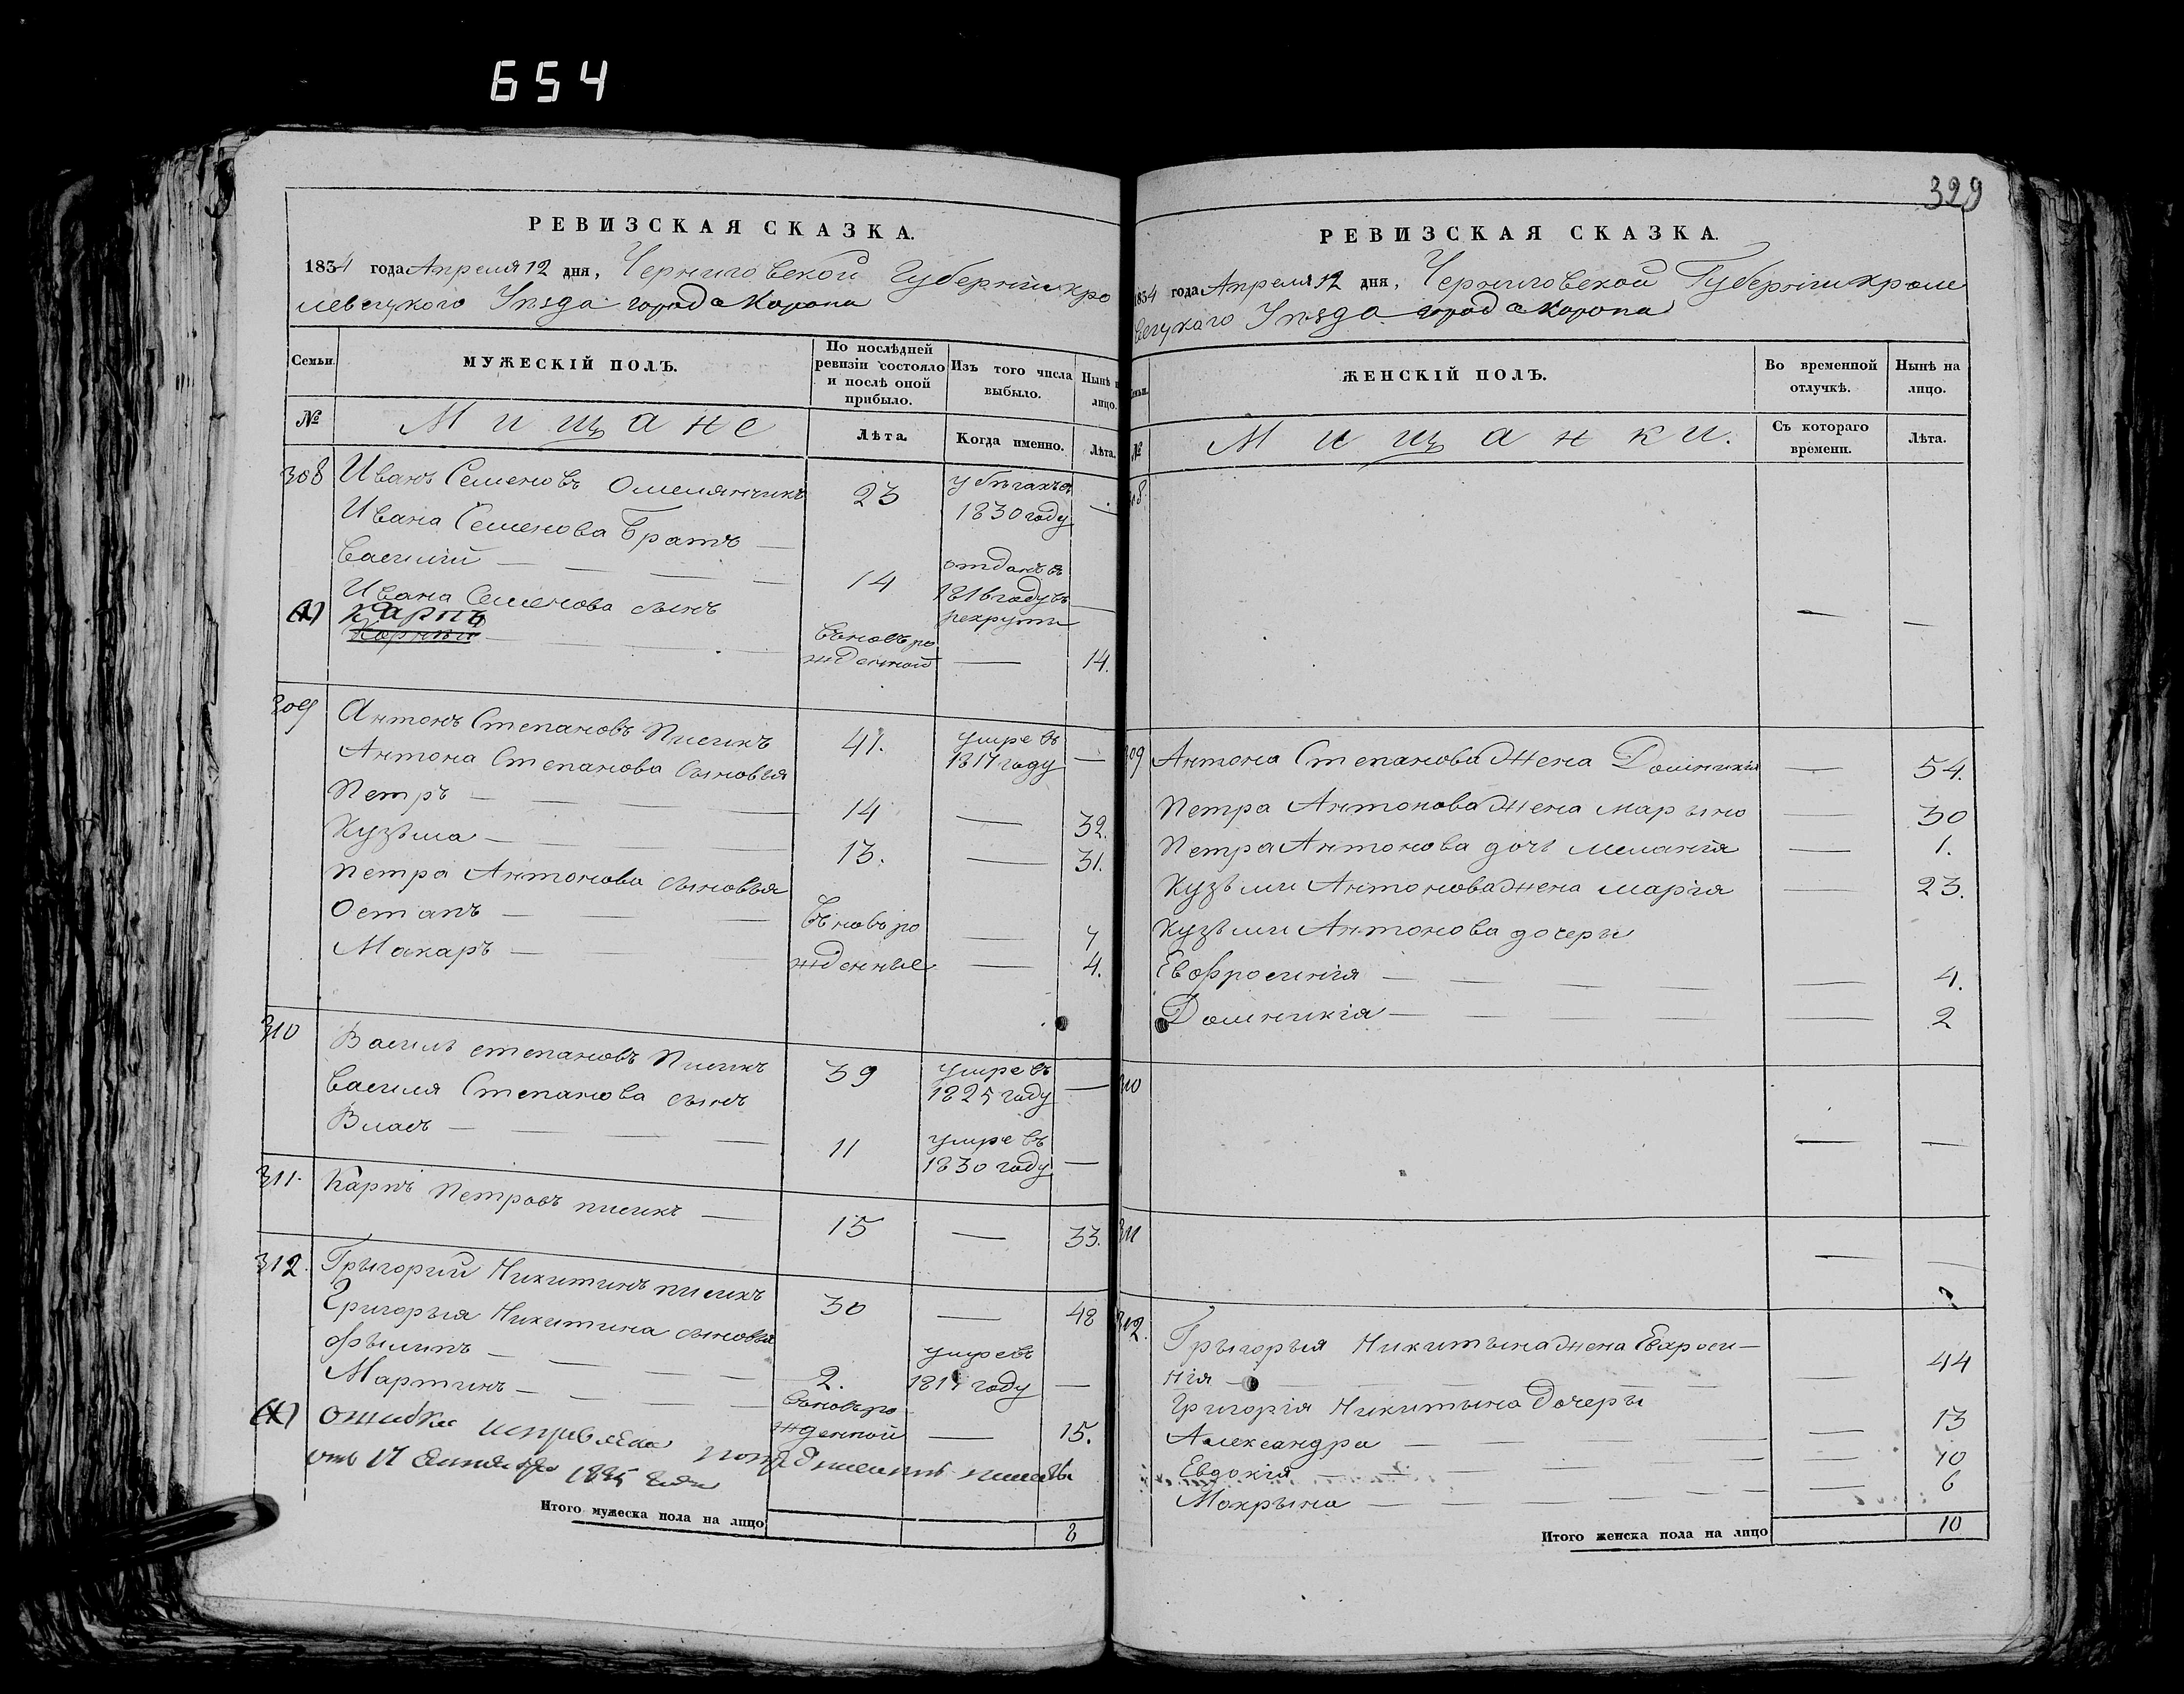 654
РЕВИЗСКАЯ СКАЗКА.
1834 года Апреля 12 дня, Черниговской Губернии Кро
левецкого Уѣзда города Коропа
Семьи.
МУЖЕСКІЙ ПОЛЪ.
По послѣдней ревизіи состояло и послѣ оной прибыло.
Изъ того числа выбыло.
Нынѣ н лицо.
№
Мищане
Лѣта.
Когда именно.
Лѣта.
308 Иванъ Семеновъ Омелянчикъ 23 убѣгахъ въ 1830 году —
Ивана Семенова Братъ —
Василий — 14 отданъ въ 1816 году въ рекруты —
Ивана Семенова сынъ
(1) Карпъ
Корнѣй — вновь рожденной — 14.
309 Антонъ Степановъ Писикъ 41. умре въ 1817 году —
Антона Степанова сыновья
Петръ — 14 — 32.
Кузьма — 13. — 31.
Петра Антонова сыновья
Остапъ — вновь ро — 7
Макаръ — жденные — 4.
310 Василь степановъ Писикъ 39 умре въ 1825 году —
Василя Степанова сынъ
Власъ — 11 умре въ 1830 году —
311. Карпъ Петровъ писикъ — 15 — 33.
312. Грыгорий Никитинъ писикъ 30 — 48
Григорыя Никитина сыновья
Фылипъ — 2. умре въ 1817 году —
Мартинъ — вновь рожденной — 15.
(1) ошибка исправлена
1835 года
Итого мужеска пола на лицо 8
329
РЕВИЗСКАЯ СКАЗКА.
1834 года Апреля 12 дня, Черниговской Губернии Кроле
вецкого Уѣзда города Коропа
№
ЖЕНСКІЙ ПОЛЪ.
Во временной отлучкѣ.
Нынѣ на лицо.
Мищанки.
Съ котораго времени.
Лѣта.
308. — —
309 Антона Степанова жена Домникия — 54.
Петра Антонова жена марына — 30
Петра Антонова дочь мелания — 1.
Кузьми Антонова жена мария — 23.
Кузьми Антонова дочери
Евфросиния — 4.
Домникия — 2
310 — —
311 — —
312. Грыгорыя Никитына жена Евфроси—
ния — 44
Григория Никитына дочеры
Александра — 13
Евдокия — 10
Мокрына — 6
Итого женска пола на лицо 10